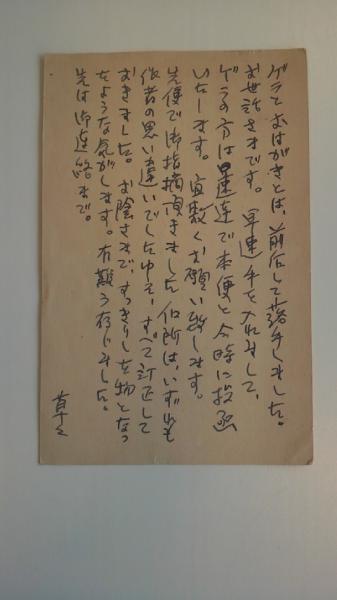 ゲラとおはがきとは、前后して落手しました。
お世話さまです。早速手を入れまして、
ゲラの方は早速達で本便と同時に投函
いたします。宜敷くお願い致します。
先便で御指摘頂きました個所は、いずれも
作者の思い違いでしたゆえ、すべて訂正して
おきました。お陰さまで、すっきりした物となっ
たような気がします。有難う存じました。
先は御連絡まで。
草々